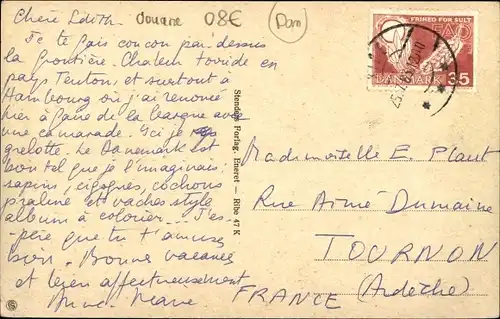 Chère Edith
douane
08€
Dan
Je te fais coucou par-dessus
la frontière. Chaleur torride en
pays Teuton, et surtout à
Hambourg où j'ai renoncé
hier à faire de la barque avec
une camarade. Ici je
grelotte. Le Danemark est
bien tel que je l'imaginais
sapins, cigognes, cochons
praline et vaches style
album à colorier... J'es-
père que tu t'amuses
bien. Bonnes vacances
et bien affectueusement
Stenders Forlag. Eneret — Ribe 47 K
FRIHED FOR SULT
FAO
DANMARK 35
Mademoiselle E. Plaut
Rue Aimé Dumaine
TOURNON
(Ardèche)
FRANCE